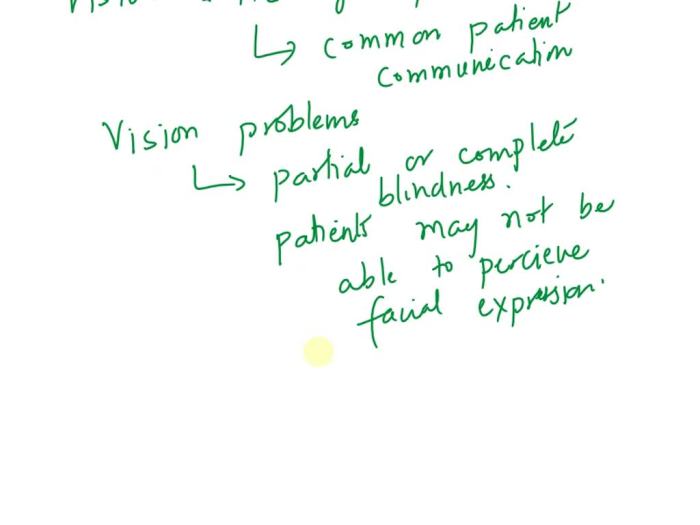 ↳ common patient
communication
Vision problems
↳ partial or complete
blindness.
patients may not be
able to percieve
facial expression.